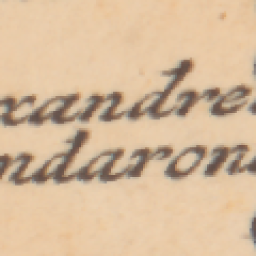 xandre
ndaron